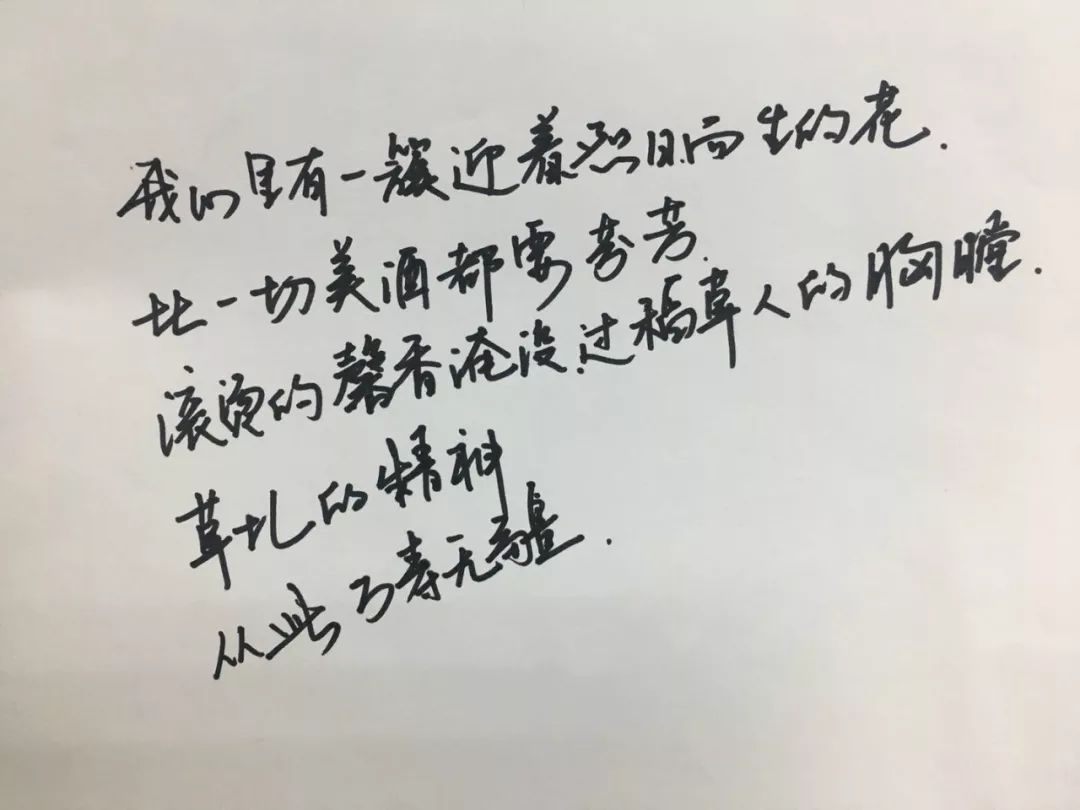 我们里有一簇迎着烈日而生的花.
比一切美酒都要芬芳.
滚烫的馨香淹没过稻草人的胸膛.
草扎的精神
从此万寿无疆.